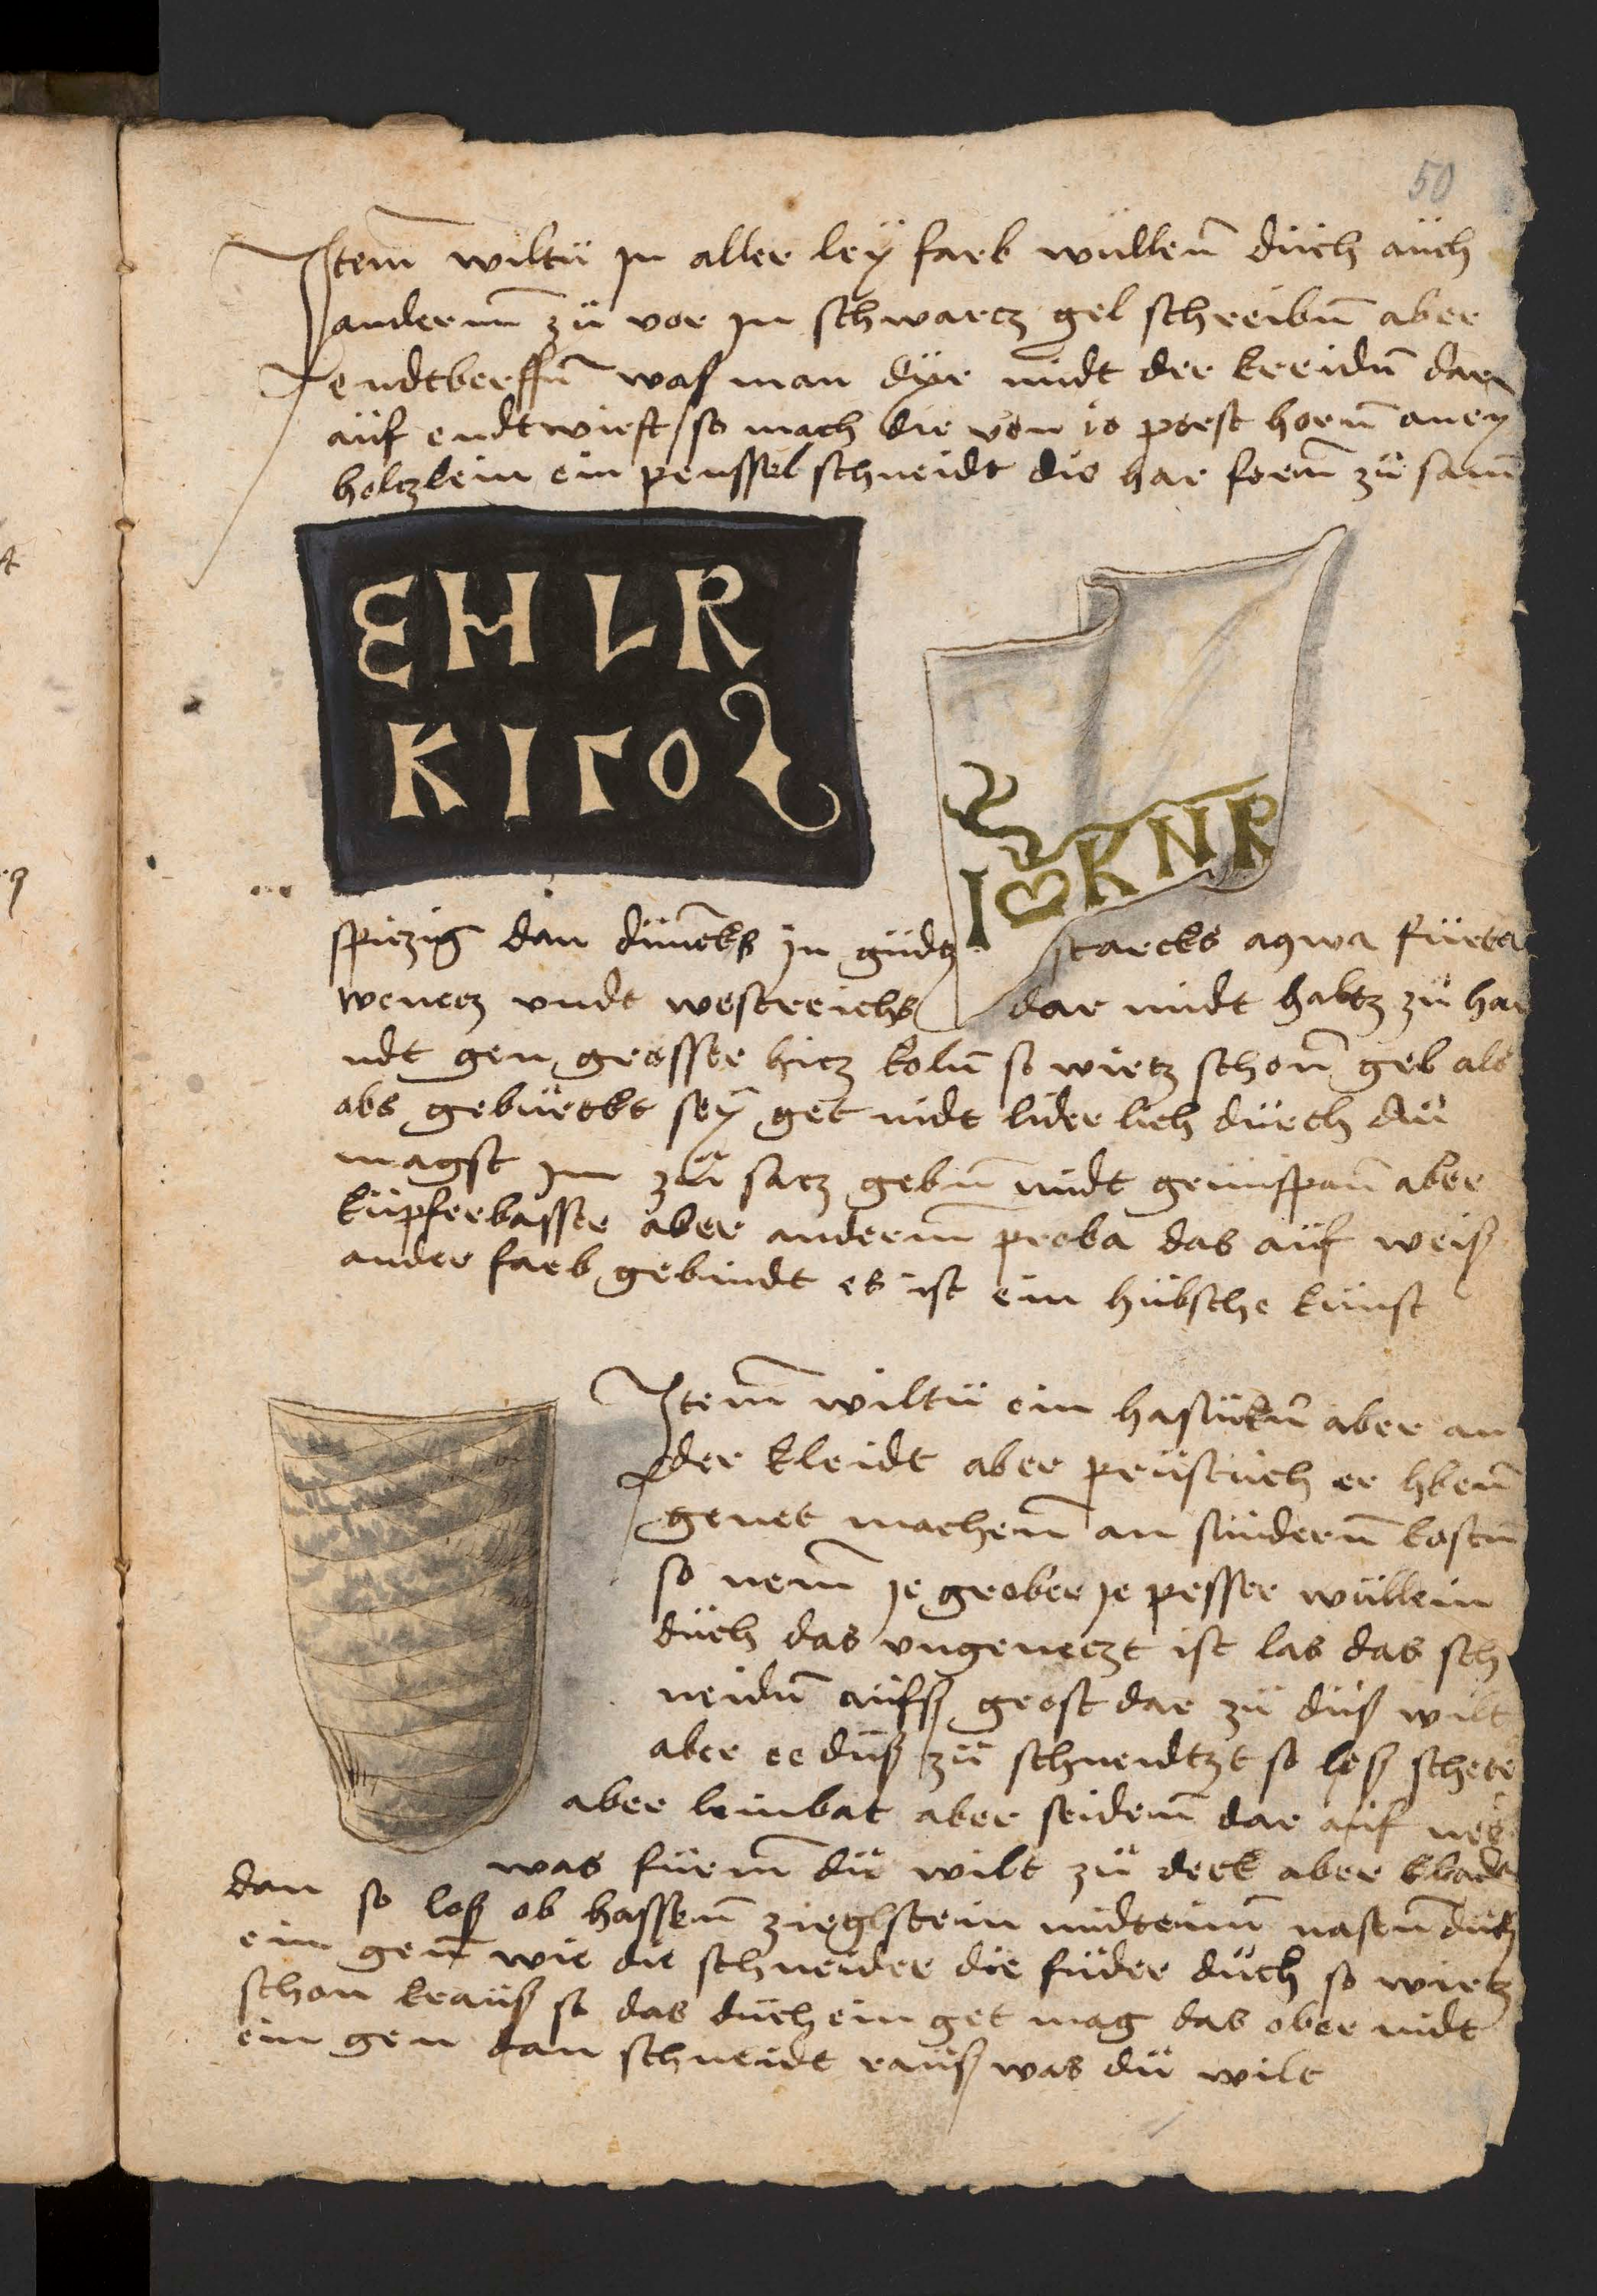 50
Jtem wiltu jn aller ley farb wullen duch auch
anderm zu vor jn schwarcz gel schreibn aber
endtberffn was man dyr midt der kreidn dar
auf endtwirft so mach die von io porst horn an ey
holczlein ein penssel schneidt die har forn zu sam
EHLR
KIΓO
I KNR
spiczig dan duncks jn gudcz starcks aqwa fürta
wenecz vndt westreichs dar midt habcz zu ha
ndt gen grosser hicz koln so wircz schon gel als
obs gebürckt sey get nidt liderlich durch du
magst im zu sacz gebn midt grunspan aber
kupferbasser aber anderm proba das auf weis
ander farb gebindt es ist ein hubsche kunst
Jtem wiltu ein hasückn aber an
der kleidt aber prustuch er hben
genet machen an sundern kostn
so nem je grober je pesser wullein
duch das vngeneczt ist las das sch
neidn aufs grost dar zu dus wilt
aber ee dus zu schneidtzt so les scheter
aber leinbat aber seidem dar auf nee
was furm du wilt zu derk aber
dan so los ob hassem zieglstein midteim nasen duch
ein gen wie die schneider die fuder duch so wircz
schon kraus so das duch ein get mag das ober nidt
ein gen dan schneidt raus was du wilt